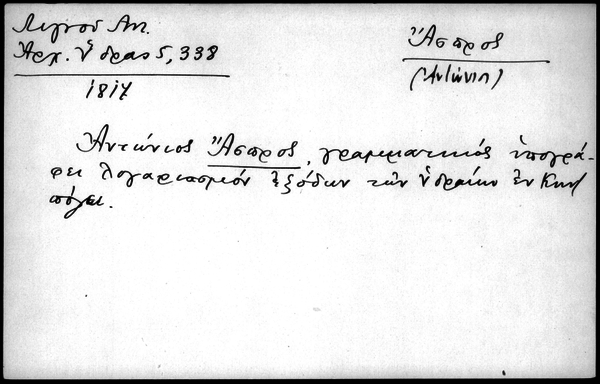 Λιγνού Αντ.
Ἀρχ. Ὕδρας 5, 338
1817
Ἄσπρος
(Ἀντώνιος)
Ἀντώνιος Ἄσπρος, γραμματικός ὑπογρά-
φει λογαριασμόν ἐξόδων τῶν Ὑδραίων ἐν Κων/
πόλει.